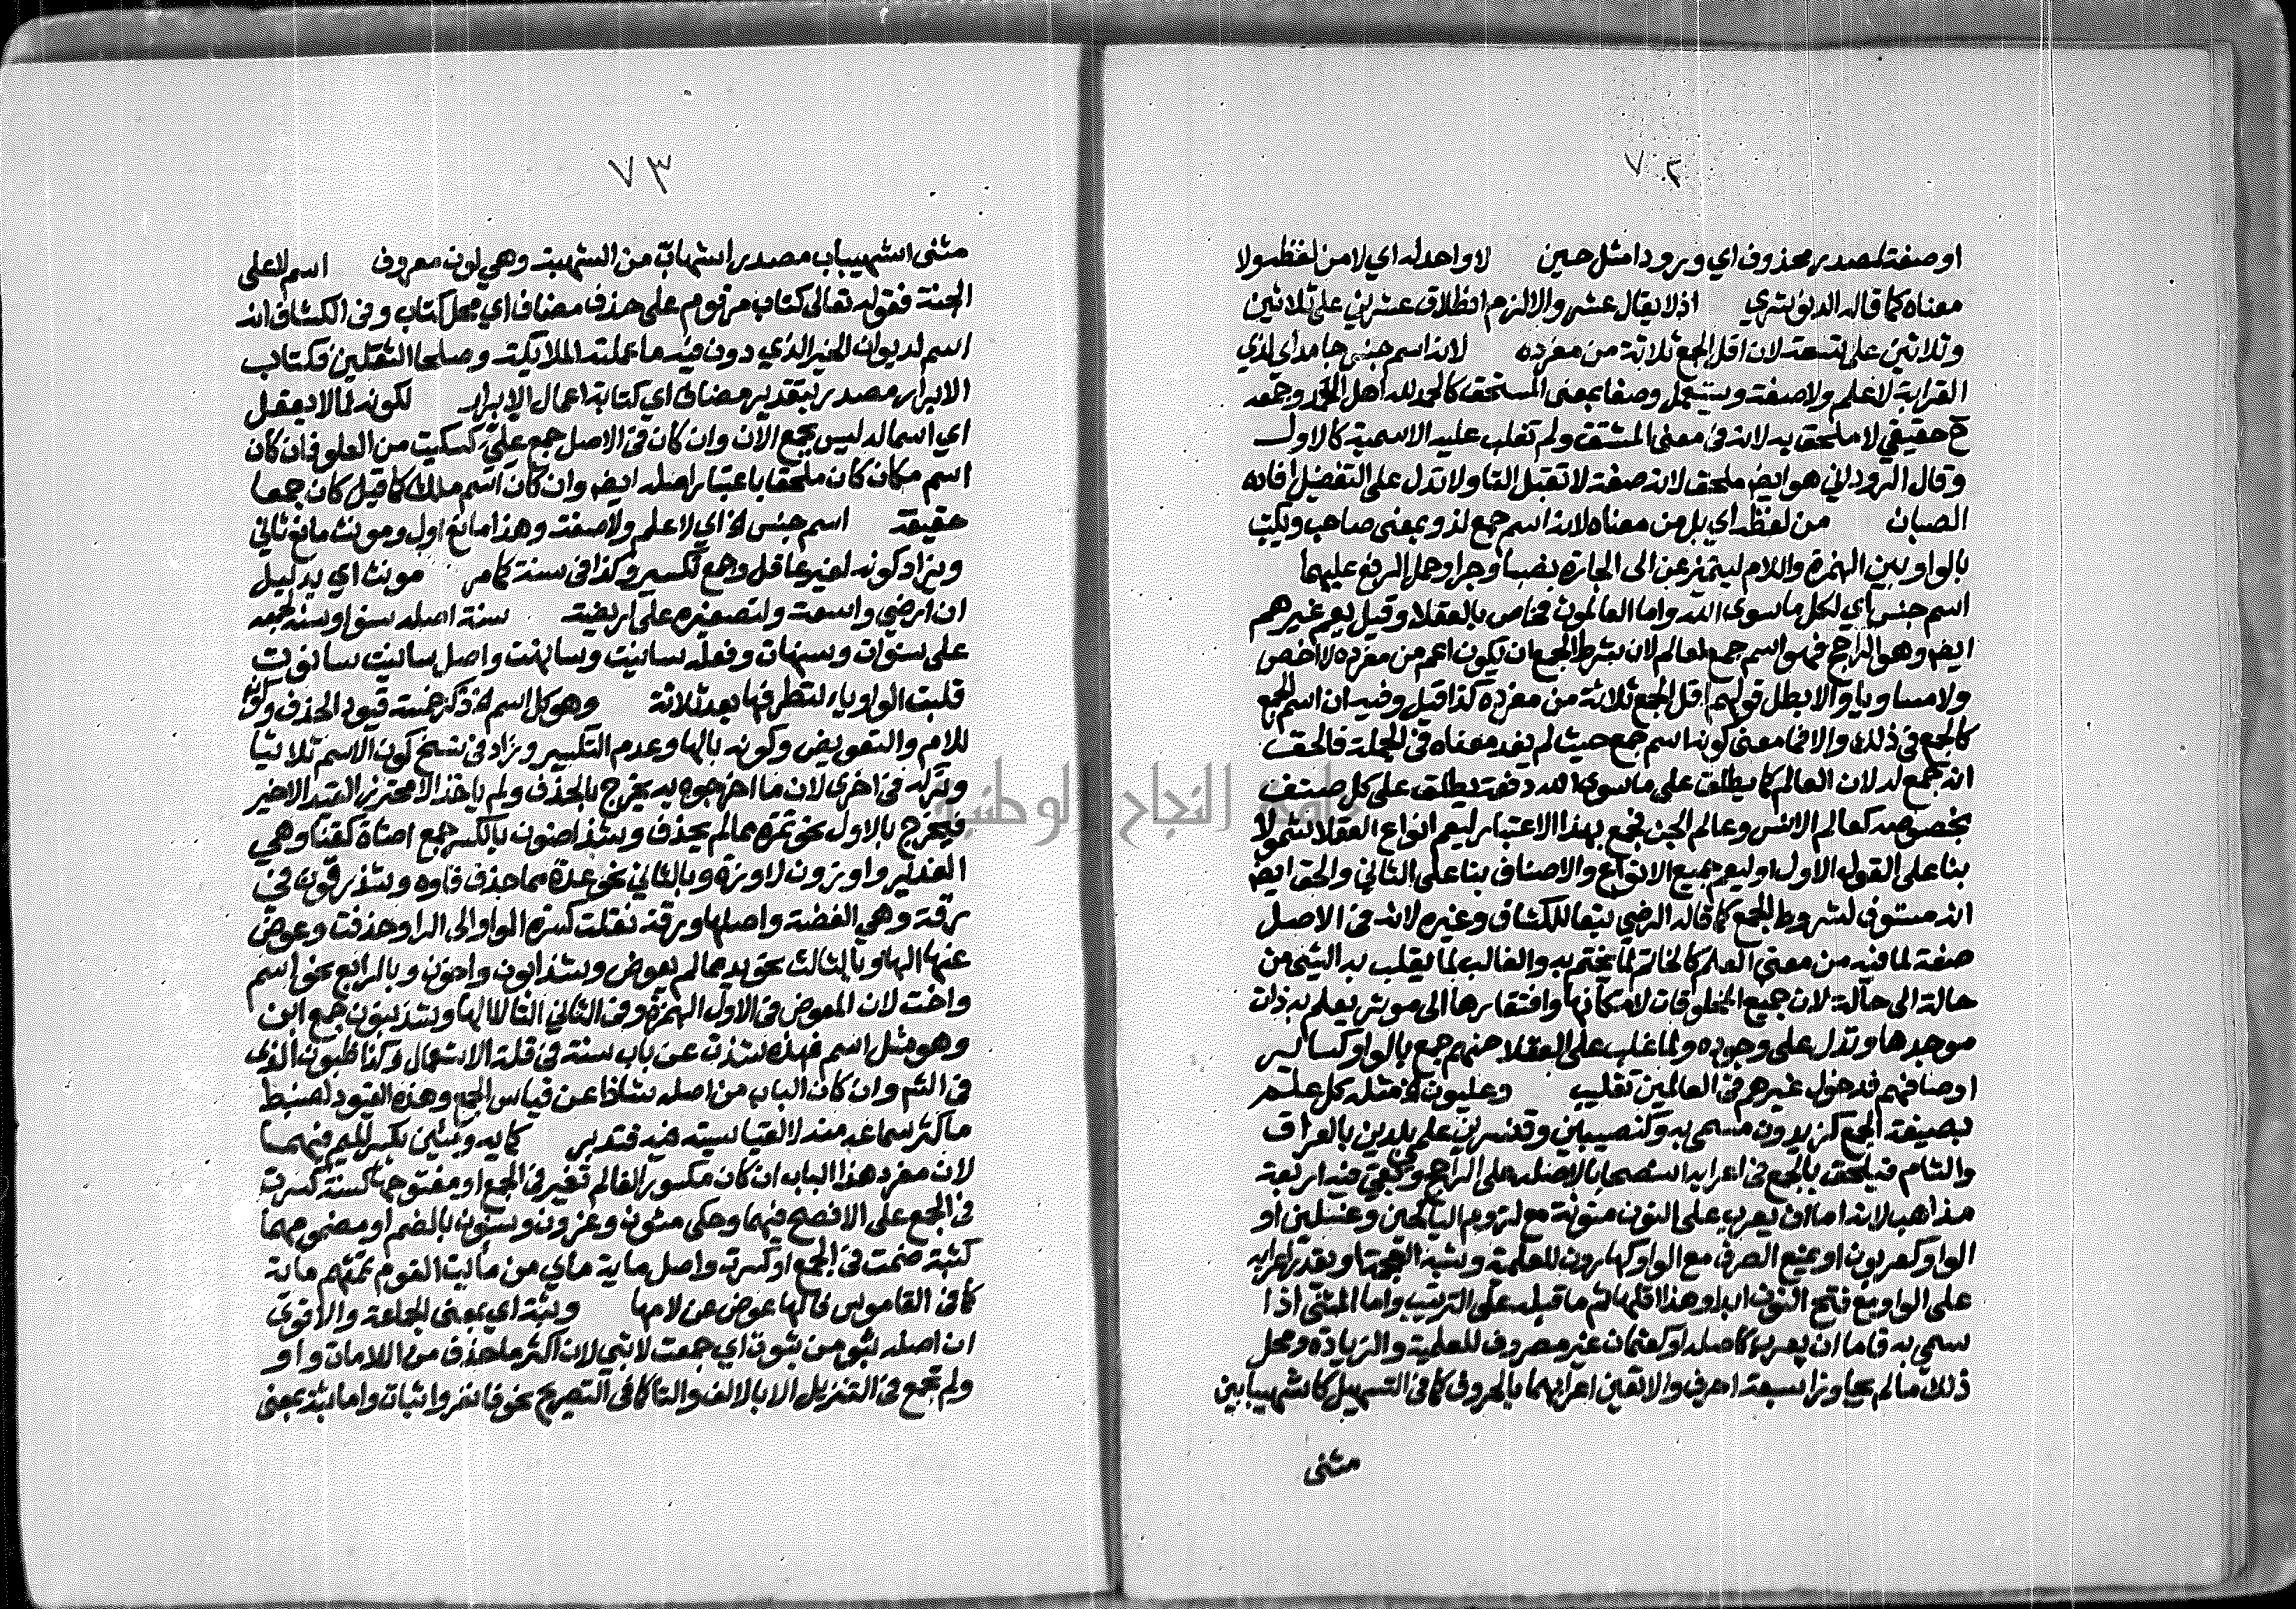 ٧٢
او صفة لمصدر محذوف اي ورودا مثل حين لا واحد له اي لا من لفظه ولا
معناه كما قاله الدنوشري اذ لا يقال عشر والا لزم اطلاق عشرين على ثلاثين
وثلاثين على تسعة لان اقل الجمع ثلاثة من مفرده لانه اسم جنس جامد اي لذي
القرابة لا علم ولا صفة ويستعمل وصفا بمعنى المستحق كالحمد لله اهل الحمد وجمعه
ح حقيقي لا ملحق به لانه في معنى المشتق ولم تغلب عليه الاسمية كالاول
وقال الروداني هو ايض ملحق لانه صفة لا تقبل التا ولا تدل على التفضيل افاده
الصبان من لفظه اي بل من معناه لانه اسم جمع لذو بمعنى صاحب ويكتب
بالواو بين الهمزة واللام ليتميز عن الى الجارة نصبا وجرا وحمل الرفع عليهما
اسم جنس اي لكل ما سوى الله واما العالمون فخاص بالعقلا وقيل يعم غيرهم
ايض وهو الراجح فهو اسم جمع لعالم لان شرط الجمع ان يكون اعم من مفرده لا اخص
ولا مساويا والا بطل قولهم اقل الجمع ثلاثة من مفرده كذا قيل وفيه ان اسم الجمع
كالجمع في ذلك والا فما معنى كونه اسم جمع حيث لم يفد معناه في الجملة فالحق
انه جمع له لان العالم كما يطلق على ما سوى الله دفعة يطلق على كل صنف
بخصوصه كعالم الانس وعالم الجن فجمع بهذا الاعتبار ليعم انواع العقلا شمولا
بنا على القول الاول او ليعم جميع الانواع والاصناف بنا على الثاني والحق ايض
انه مستوف لشروط الجمع كما قاله الرضي تبعا للكشاف وغيره لانه في الاصل
صفة لما فيه من معنى العلم كالخاتم لما يختم به والقالب لما يقلب به الشي من
حالة الى حالة لان جميع المخلوقات لامكانها وافتقارها الى موثر يعلم به ذات
موجدها وتدل على وجوده ولما غلب على العقلا منهم جمع بالواو كسائر
اوصافهم فدخول غيرهم في العالمين تغليب وعليون الخ مثله كل علم
بصيغة الجمع كزيدون مسمى به وكنصيبين وقنسرين علمي بلدين بالعراق
والشام فيلحق بالجمع في اعرابه استصحابا لاصله على الراجح وبقي فيه اربعة
مذاهب لانه اما ان يعرب على النون منونة مع لزوم اليا كحين وغسلين او
الواو كعربون او يمنع الصرف مع الواو كهارون للعلمية وشبه العجمة او يقدر اعرابه
على الواو مع فتح النون ابدا وهذا اقلها ثم ما قبله على الترتيب واما المثنى اذا
سمى به فاما ان يعرب كاصله او كعثمان غير مصروف للعلمية والزيادة ومحل
ذلك ما لم يجاوز سبعة احرف والا تعين اعرابهما بالحروف كما في التسهيل كاشهيبابين
مثنى
٧٣
مثنى اشهيباب مصدر اشهاب من الشهبة وهي لون معروف اسم لاعلى
الجنة فقوله تعالى كتاب مرقوم على حذف مضاف اي محل كتاب وفي الكشاف انه
اسم لديوان الخير الذي دون فيه ما عملته الملايكة وصلحا الثقلين فكتاب
الابرار مصدر بتقدير مضاف اي كتابة اعمال الابرار لكونه لما لا يعقل
اي اسما له ليس بجمع الان وان كان في الاصل جمع علي كسكيت من العلو فان كان
اسم مكان كان ملحقا باعتبار اصله ايض وان كان اسم ملك كما قيل كان جمعا
حقيقة اسم جنس الخ اي لا علم ولا صفة وهذا مانع اول ومونث مانع ثاني
ويزاد كونه لغير عاقل وجمع تكسير وكذا في سنة كما مر مونث اي بدليل
ان ارضي واسعة ولتصغيره على اريضة سنة اصله سنو او سنه لجمعه
على سنوات وسنهات وفعله سانيت وسانهت واصل سانيت سانوت
قلبت الواو ياء لتطرفها بعد ثلاثة وهو كل اسم الخ ذكر خمسة قيود الحذف وكونه
للام والتعويض وكونه بالها وعدم التكسير وزاد في نسخ كون الاسم ثلاثيا
وتركه في اخرى لان ما اخرجوه به يخرج بالحذف ولم ياخذ الا محترز القيد الاخير
فيخرج بالاول نحو تمرة مما لم يحذف وشذ اضون بالكسر جمع اضاة كقناة وهي
الغدير واوزون لاوزة وبالثاني نحو عدة مما حذف فاوه وشذ رقون في
رقة وهي الفضة واصلها ورقة نقلت كسرة الواو الى الرا وحذفت وعوض
عنها الها وبالثالث نحو يد مما لم يعوض وشذ ابون واخون وبالرابع نحو اسم
واخت لان المعوض في الاول الهمزة وفي الثاني التا لا الها وشذ بنون جمع ابن
وهو مثل اسم فهذه شذت عن باب سنة في قلة الاستعمال وكذا ظبون الذي
في الشم وان كان الباب من اصله شاذا عن قياس الجمع وهذه القيود لضبط
ما كثر سماعه منه لا لقياسيته فيه فتدبر كمايه ومئين بكسر الميم فيهما
لان مفرد هذا الباب ان كان مكسور الفا لم تغير في الجمع او مفتوحها كسنة كسرت
في الجمع على الافصح فيهما وحكي مئون وعزون وسنون بالضم او مضمومها
كثبة ضمت في الجمع او كسرت واصل ماية ماي من مأيت القوم تممتهم ماية
كما في القاموس فالها عوض عن لامها وثبة اي بمعنى الجماعة والاقوى
ان اصله ثبو من ثبوت اي جمعت لا ثبي لان اكثر ما حذف من اللامات واو
ولم تجمع في التنزيل الا بالالف والتا كما في التصريح نحو فانفروا ثبات واما ثبة بمعنى
جامعة النجاح الوطنية